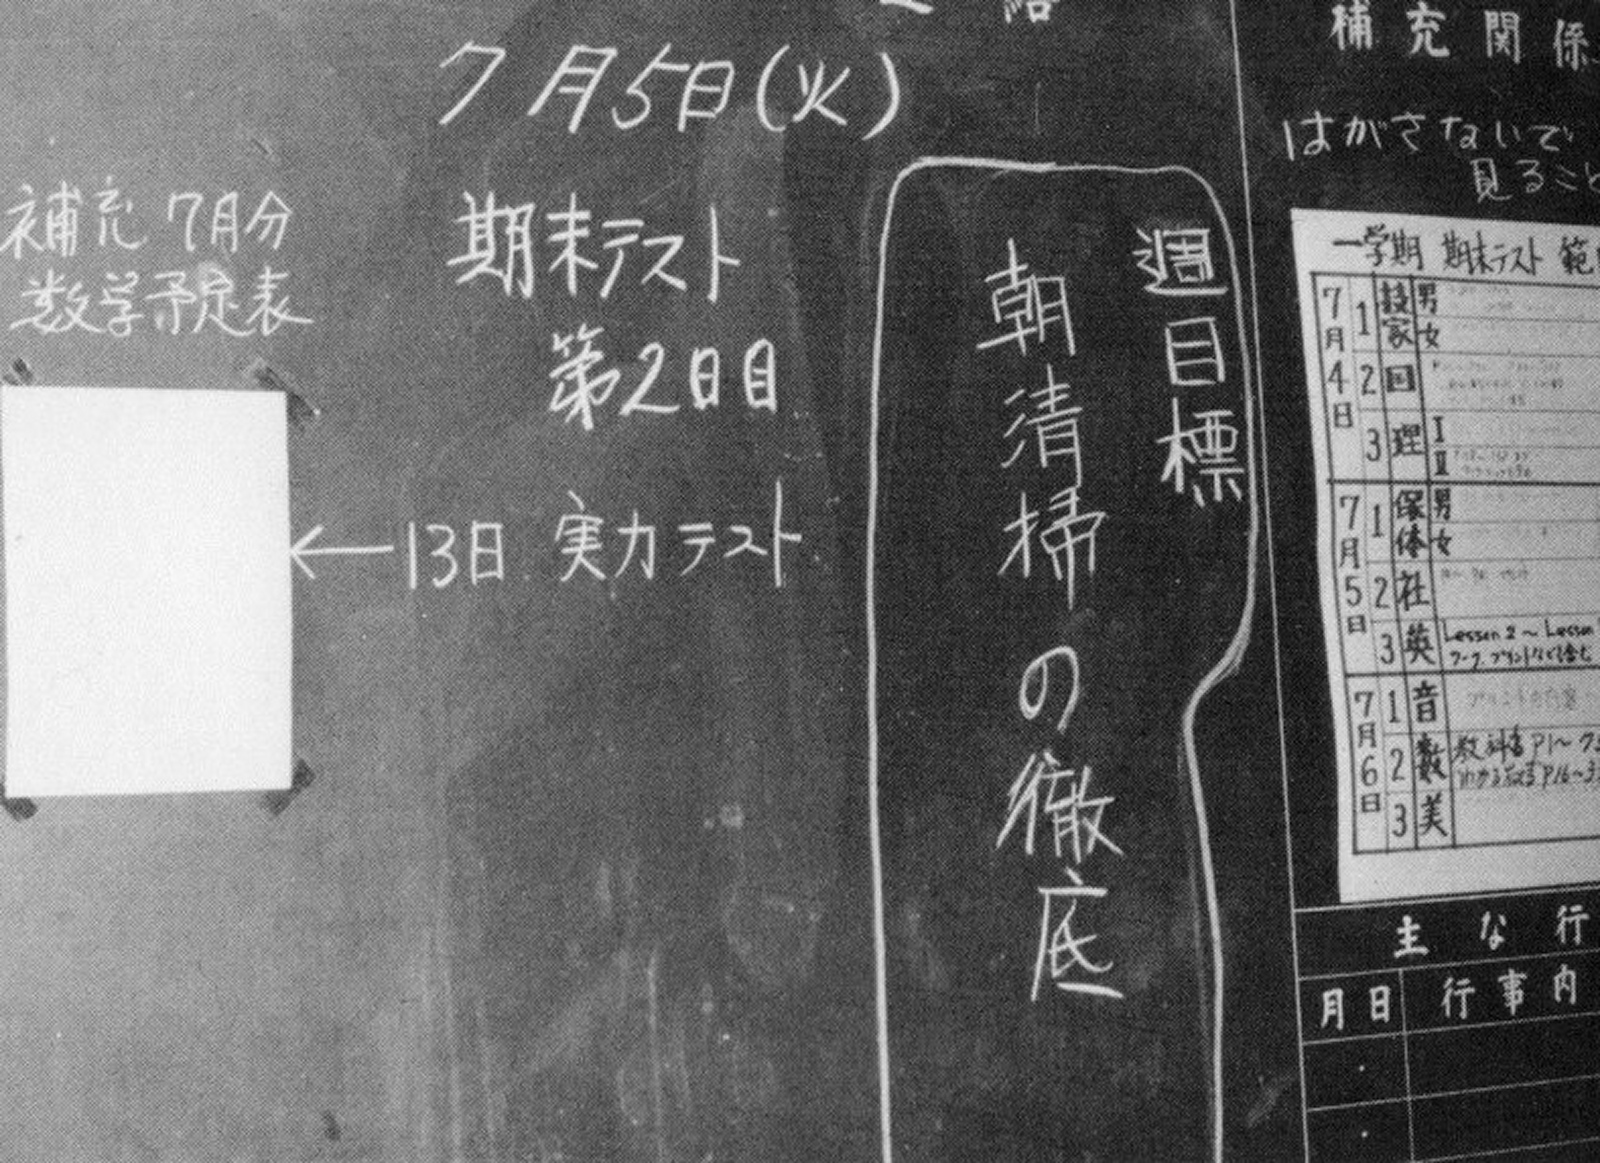 7月5日(火)
補充 7月分
数学予定表
期末テスト
第2日目
←13日 実力テスト
週目標
朝清掃の徹底
補充関係
はがさないで
見ること
一学期 期末テスト
7月4日
1 技家 男 女
2 国
3 理 I II
7月5日
1 保体 男 女
2 社
3 英 Lesson 2 ～ Lesson
ワーク、プリントなども含む
7月6日
1 音
2 数 教科書 P1～
P16～
3 美
主な行
月日 行事内